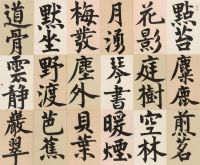 點苔麋鹿煎茗
花影庭樹空林
月湧琴書暖煙
梅發塵外貝葉
默坐野渡芭蕉
道骨雲靜巖翠